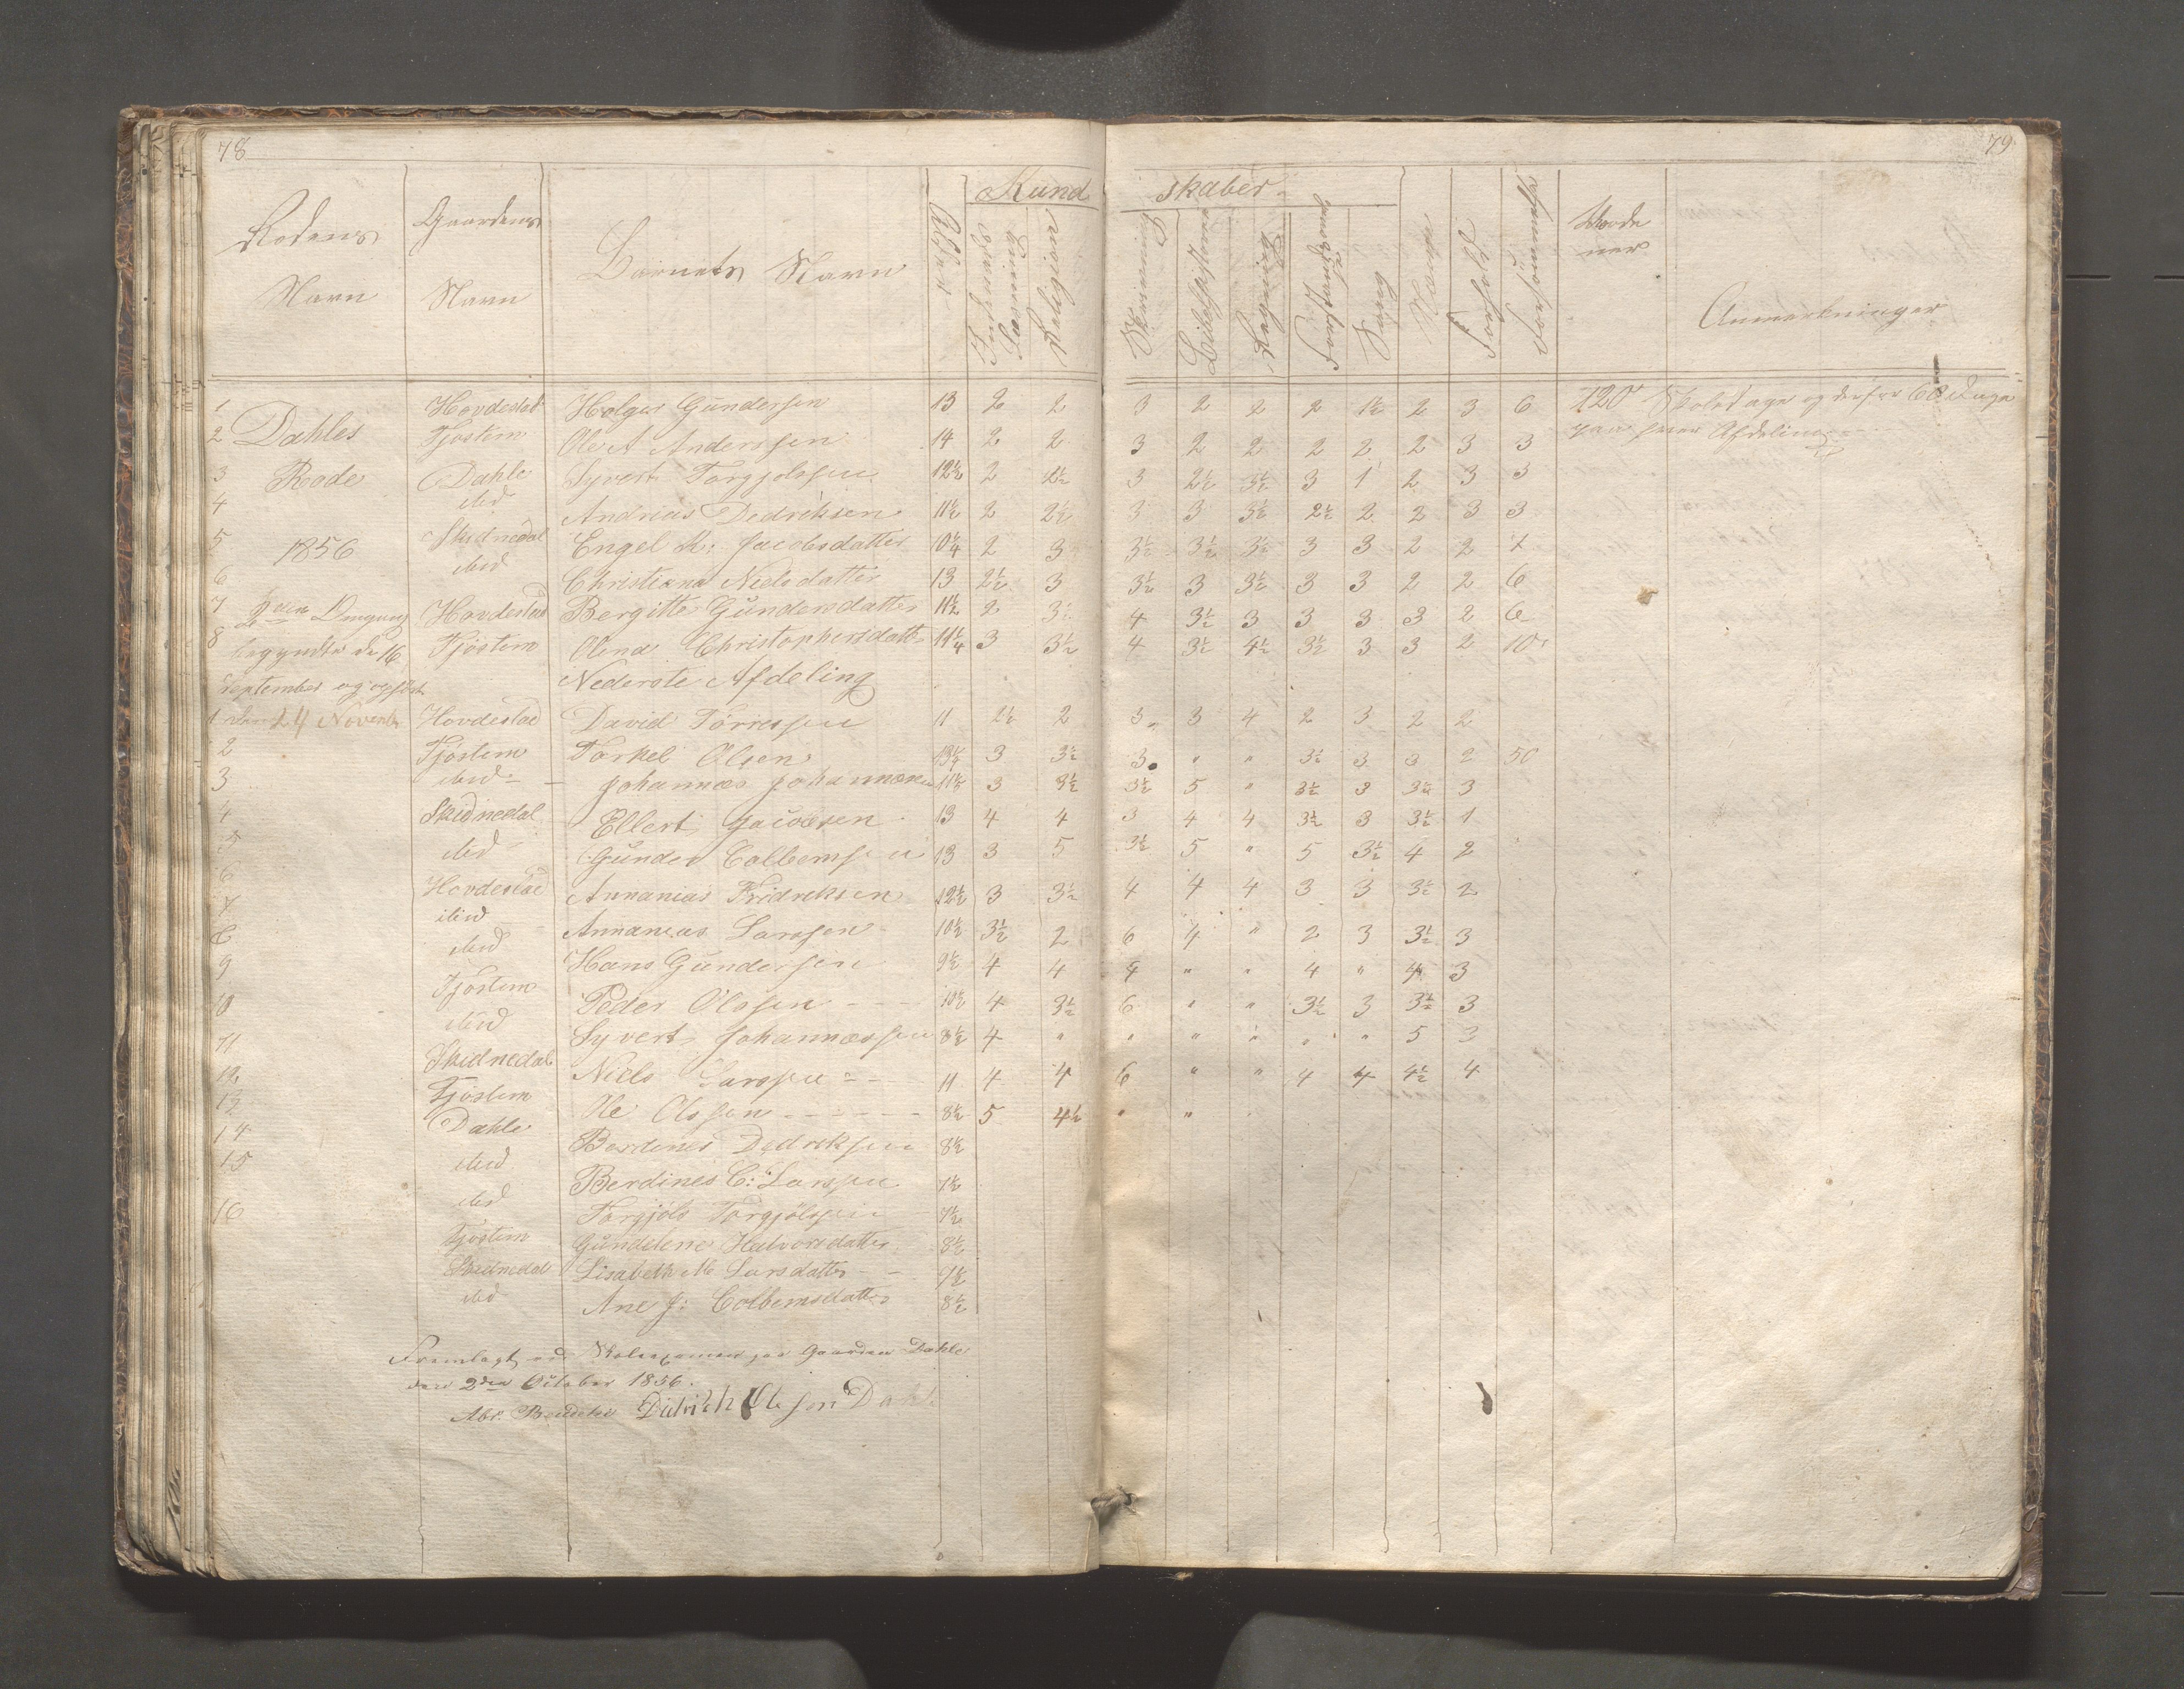 78
79
Kund skaber
Rodens Navn
Gaardens Navn
Barnets Navn
Alder
Religion
Skrivning
Bibelhistorie
Regning
Sang
Forhold
Forsömmelse
Anmærkninger
1 Hovdestad Holger Gundersen 13 2 2 3 2 2 2 1½ 2 3 6 120 Skoledage og derfor 60 Dage
2 Dahles Tjöstem Ole A Anderssen 14 2 2 3 2 2 2 2 2 3 3 paa hver Afdeling
3 Rode Dahle Syvert Torgjolssen 12½ 2 2½ 3 2½ 3½ 3 1 2 3 3
4 ibid Andrias Dedriksen 11½ 2 2½ 3 3 3½ 2½ 2 2 3 3
5 1856 Skidnedal Engel K: Jacobsdatter 10¼ 2 3 3½ 3½ 3½ 3 3 2 2 7
6 ibid Christiana Nielsdatter 13 2½ 3 3½ 3 3½ 3 3 2 2 6
7 2den Omgang Hovdestad Bergitte Gundersdatter 11½ 2 3½ 4 3½ 3 3 3 3 2 6
8 begyndte de 16 Tjöstem Olena Christophersdatt 11¼ 3 3½ 4 3½ 4½ 3½ 3 3 2 10
September og
Nederste Afdeling
1 24 Novemb Hovdestad David Törressen 11 2½ 2 3 3 4 2 3 2 2
2 Tjöstem Torkel Olsen 13½ 3 3½ 3 " " 3½ 3 3 2 50
3 ibid Johannas Johannasen 11½ 3 3½ 3½ 5 " 3½ 3 3½ 3
4 Skidnedal Ellert Jacobsen 13 4 4 3 4 4 3½ 3 3½ 1
5 ibd Gunder Colbemsen 13 3 5 3½ 5 " 5 3½ 4 2
6 Hovdestad Annanias Fridreksen 12½ 3 3½ 4 4 4 3 3 3½ 2
7 ibid Annanias Larssen 10½ 3½ 2 6 4 " 2 3 3½ 3
8 ibid Hans Gundersen 9½ 4 4 4 " " 4 " 4 3
9 Tjöstem Peder Olssen 10½ 4 3½ 6 " " 3½ 3 3½ 3
10 ibid Syvert Johannassen 8½ 4 " " " " " " 5 3
11 Skidnedal Niels Larssen 11 4 4 6 " " 4 4 4½ 4
12 Tjöstem Ole Olssen 8½ 5 4½ " "
13 Dahle Berdines Dedreksen 8½
14 ibid Berdines C: Larssen 7½
15 ibd Torgjöls Torgjölssen 7½
16 Tjöstem Gundelene Halvorsdatter 8½
Skidnedal Lisabeth M Larsdatter 9½
ibd Ane J: Colbemsdatter 8½
Fremlagt ved Skoleexamen paa Gaarden Dahle
den 2den October 1856.
Didrich Olsson Dahle